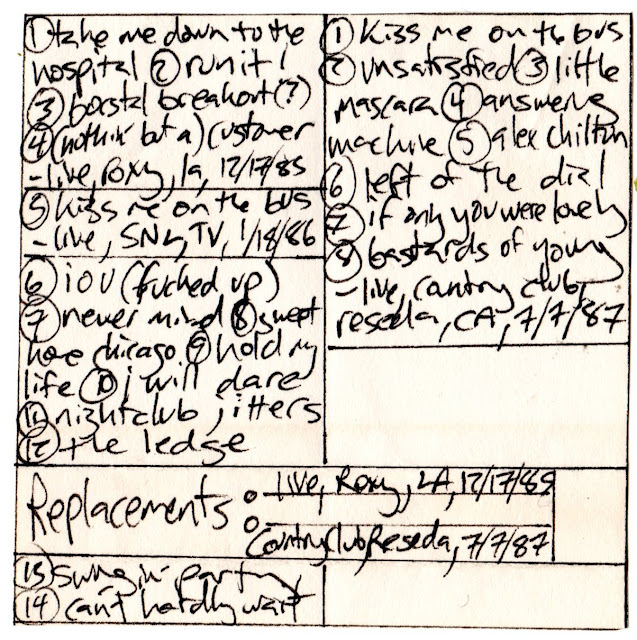 ① take me down to the
hospital ② run it!
③ borstal breakout (?)
④ (nothin' but a) customer
- live, roxy, la, 12/17/85
⑤ kiss me on the bus
- live, SNL, TV, 1/18/86
⑥ i o u (fucked up)
⑦ never mind ⑧ sweet
home chicago ⑨ hold my
life ⑩ i will dare
⑪ nightclub jitters
⑫ the ledge
① kiss me on the bus
② unsatisfied ③ little
mascara ④ answering
machine ⑤ alex chilton
⑥ left of the dial
⑦ if only you were lonely
⑧ bastards of young
- live, country club,
reseda, CA, 7/7/87
Replacements: Live, Roxy, LA, 12/17/85
Country Club, Reseda, 7/7/87
⑬ swingin party
⑭ can't hardly wait